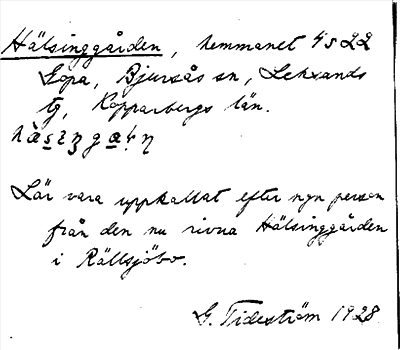 Hälsinggården, hemmanet 4 s 22
Sopa, Bjursås sn, Leksands
tg, Kopparbergs län.
Lär vara uppkallat efter ngn person
från den nu rivna Hälsinggården
i Rällsjöbo.
G. Tideström 1928